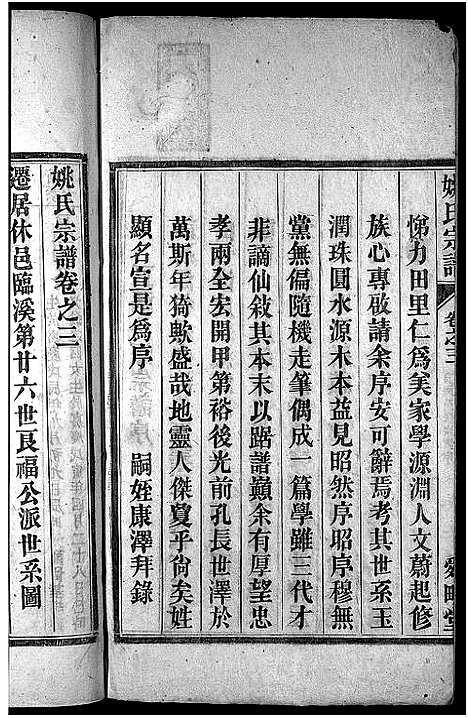 姚氏宗譜 卷之三
悌力田里仁為美家學源淵人文蔚起修
族心專啟請余序安可辭焉考其世系玉
潤珠圓水源木本益見昭然序昭序穆無
黨無偏隨機走筆偶成一篇學雖三代才
非謫仙敍其本末以踞譜巔余有厚望忠
孝兩全宏開甲第裕後光前孔長世澤於
萬斯年猗歟盛哉地靈人傑敻乎尙矣姓
顯名宣是為序
嗣姪康澤拜錄
姚氏宗譜卷之三
遷居休邑臨溪第廿六世艮福公派世系圖